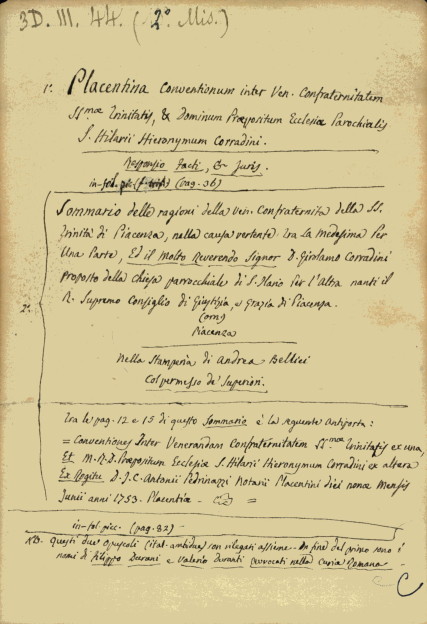 3D. III. 44. (2° Mis.)
1°. Placentina Conventionum inter Ven. Confraternitatem
SSmæ Trinitatis, & Dominum Præpositum Ecclesiæ Parochialis
S. Hilarii Hieronymum Corradini.
Responsio facti, & Juris.
in-fol. (pag. 36)
2°. Sommario delle ragioni della Ven. Confraternita della SS.
Trinità di Piacenza, nella causa vertente tra la Medesima per
Una Parte, Ed il Molto Reverendo Signor D. Girolamo Corradini
Proposto della Chiesa parrocchiale di S. Ilario per l'Altra nanti il
R. Supremo Consiglio di Giustizia, e Grazia di Piacenza.
(orn)
Piacenza
Nella Stamperia di Andrea Bellici
Col permesso de' Superiori.
Tra le pag. 12 e 15 di questo Sommario è la seguente Antiporta:
= Conventiones Inter Venerandam Confraternitatem SSmæ Trinitatis ex una,
Et M. R. D. Præpositum Ecclesiæ S. Hilarii Hieronymum Corradini ex altera
Ex Rogitu D. J. C. Antonii Pedrinazzi Notarii Placentini diei nonæ Mensis
Junii anni 1753. Placentiæ - =
in-fol. picc. (pag. 32) -
NB. Questi due opuscoli (ital. ambidue) son rilegati assieme. In fine del primo sono i
nomi di Filippo Durani e Valerio Duranti Avvocati nella Curia Romana -